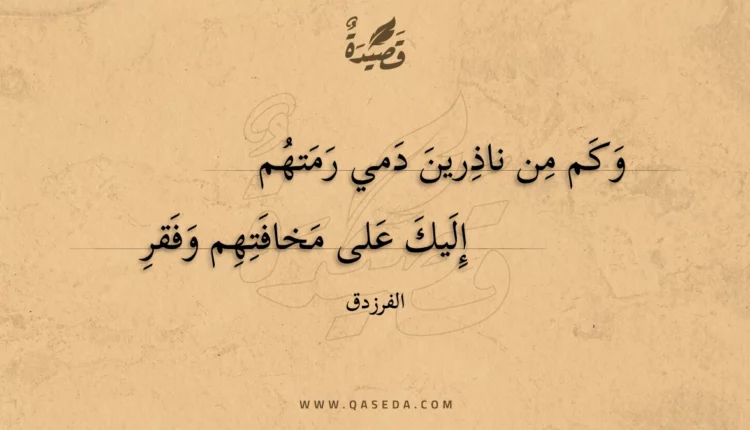 قَصِيدَةٌ
وَكَم مِن ناذِرينَ دَمي رَمَتهُم
إِلَيكَ عَلى مَخافَتِهِم وَفَقرِ
الفرزدق
WWW.QASEDA.COM